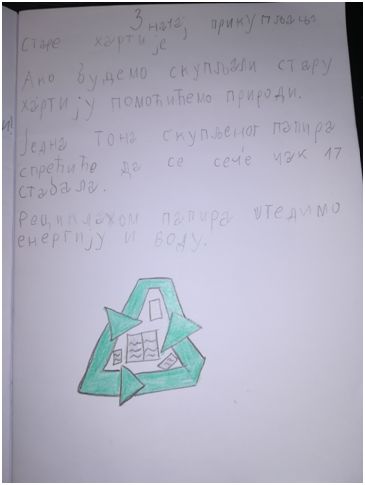 Значај прикупљања
старе хартије
Ако будемо скупљали стару
хартију помоћићемо природи.
Једна тона скупљеног папира
спречиће да се сече чак 17
стабала.
Рециклажом папира штедимо
енергију и воду.